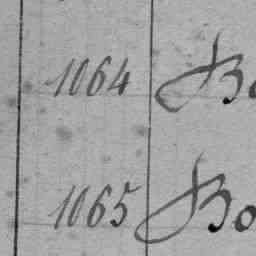 1064 Bo
1065 Bo